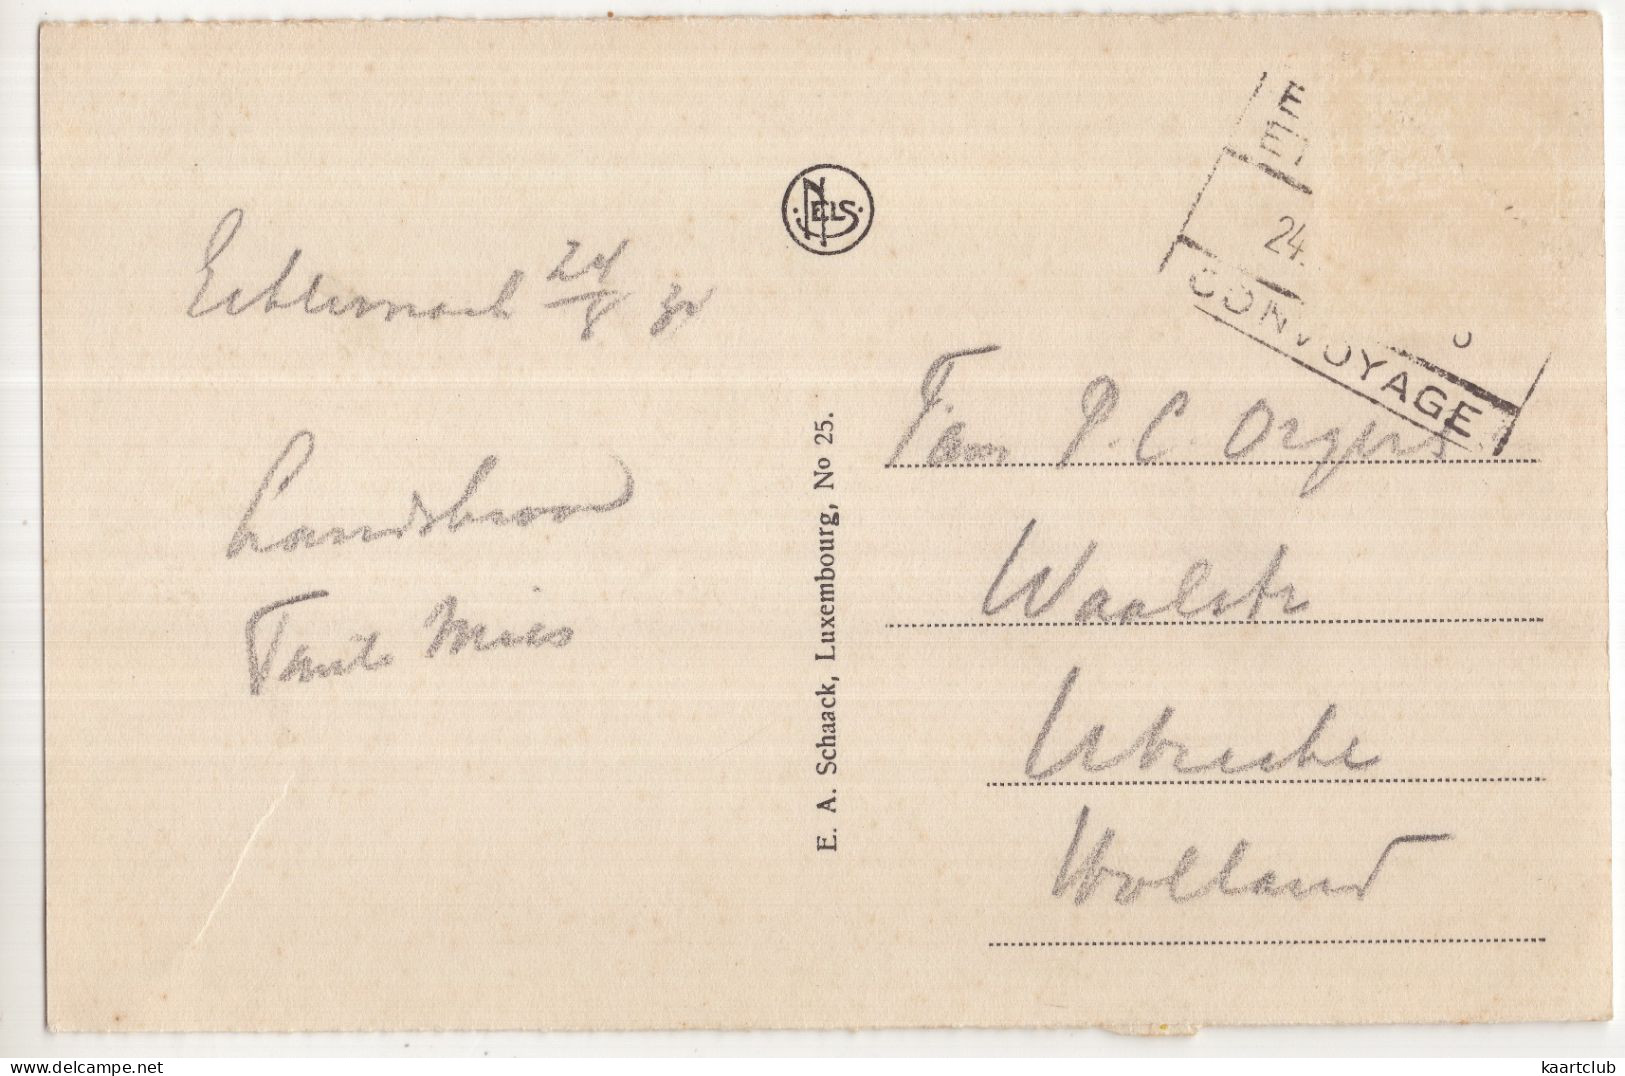 Echternach 24/8 30
Tante Mies
NELS
E. A. Schaack, Luxembourg, No 25.
E
24.
CONVOYAGE
Fam P. C. Orgers
Waalstr
Utrecht
Holland
kaartclub